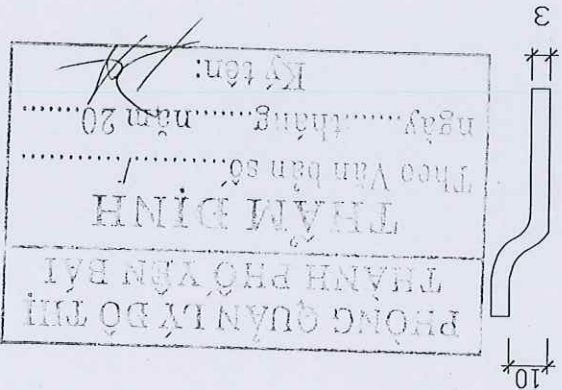 PHÒNG QUẢN LÝ ĐÔ THỊ
THÀNH PHỐ YÊN BÁI
THẨM ĐỊNH
Theo Văn bản số............/............
ngày.........tháng.........năm 20.........
Ký tên:
10
3